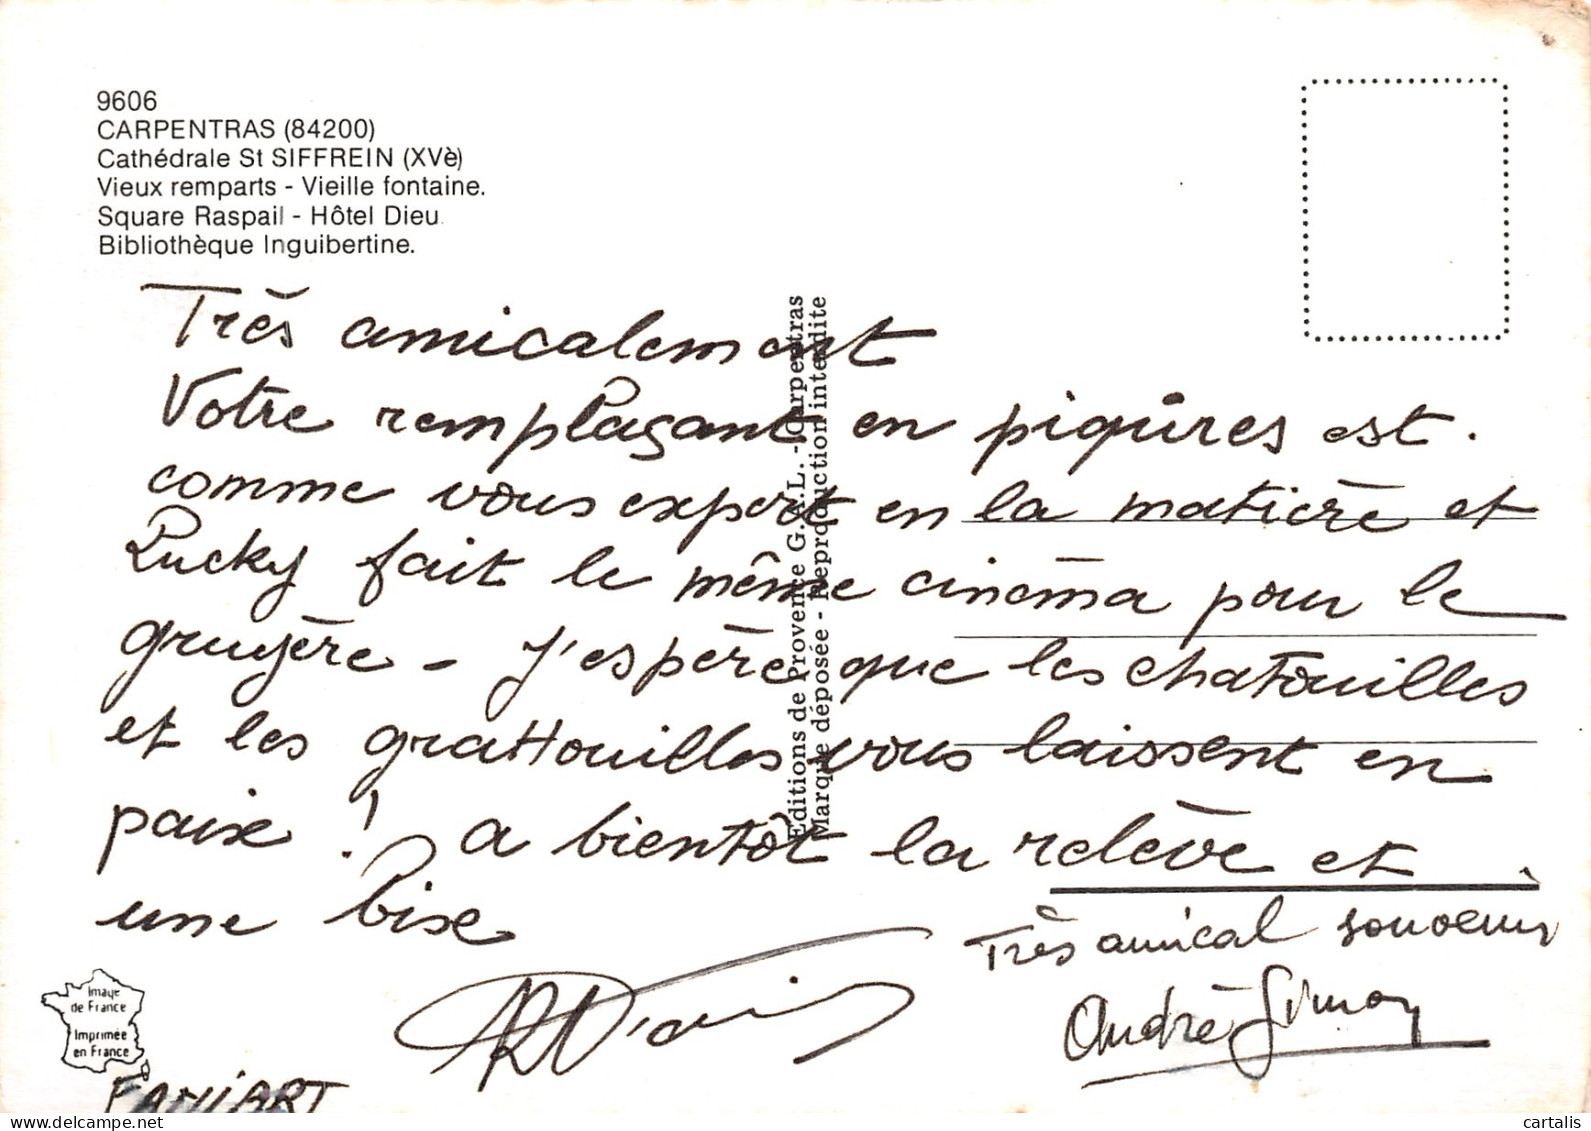 9606
CARPENTRAS (84200)
Cathédrale St SIFFREIN (XVè)
Vieux remparts - Vieille fontaine.
Square Raspail - Hôtel Dieu
Bibliothèque Inguibertine.
Très amicalement
Votre remplaçant en piqûres est.
comme vous expert en la matière et
Lucky fait le même cinéma pour le
gruyère - J'espère que les chatouilles
et les grattouilles vous laissent en
paix ! a bientôt la relève et
une bise
Très amical souvenir
André Simon
Editions de Provence G.A.L. - Carpentras
Marque déposée - Reproduction interdite
Image
de France
Imprimée
en France
cartalis